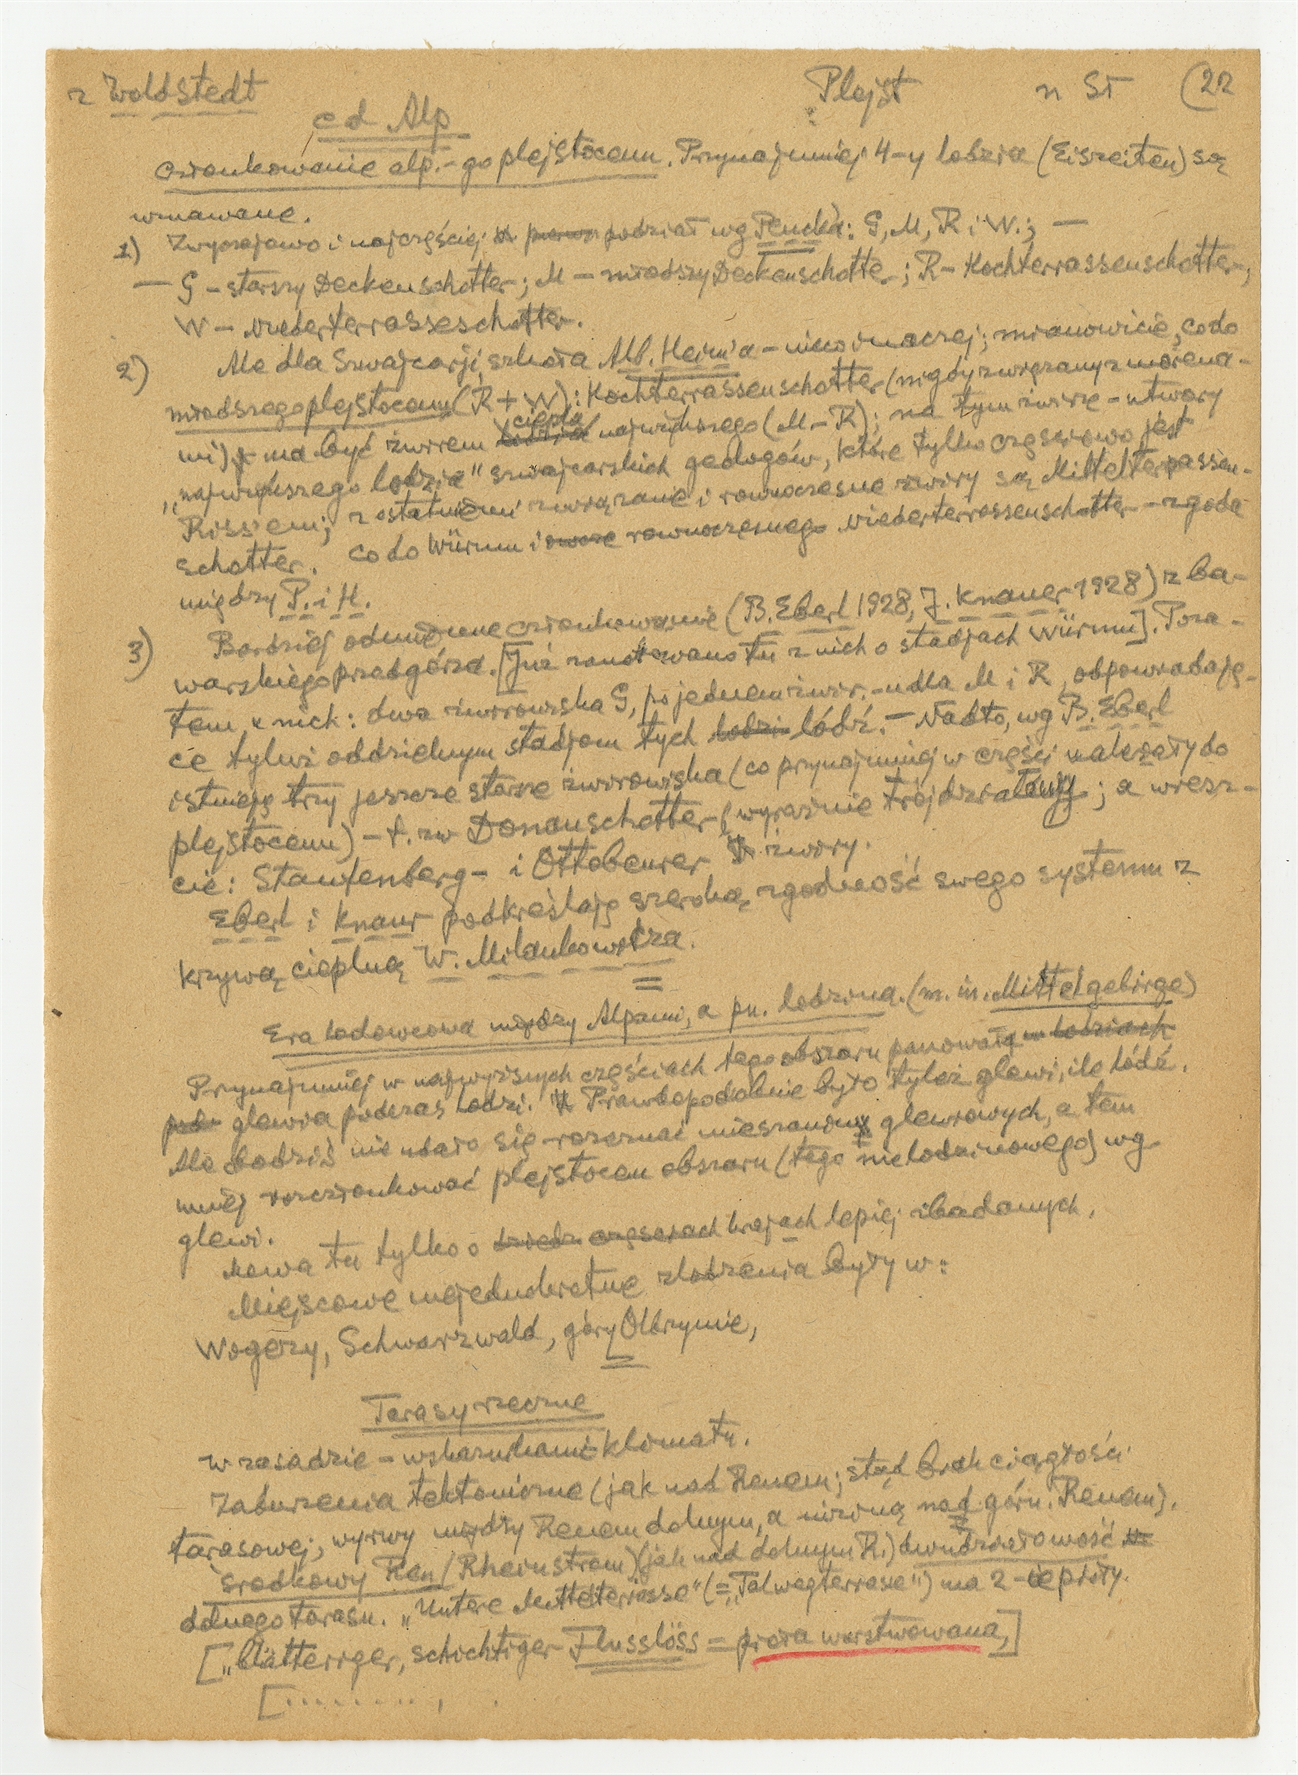 z Woldstedt Plejst n St (22
c d Alp
Członkowanie alp.-go plejstocenu. Przynajmniej 4-y lodzia (Eiszeiten) są
uznawane.
1) Zwyczajowo i najczęściej podział wg Penck'a: G, M, R i W.; —
— G – starszy Deckenschotter; M – młodszy Deckenschotter; R – Hochterrassenschotter,
W – Niederterrasseschotter.
2) Ale dla Szwajcarji szkoła Alb. Heim'a – nieco inaczej; mianowicie, co do
młodszego plejstocenu (R + W): Hochterrassenschotter (nigdy związany z morena-
mi) ma być żwirem ciepła najwyższego (M – R); na tym żwirze – utwory
„najwyższego lodzia" szwajcarskich geologów, które tylko częściowo jest
Rissiem; z ostatniem związanie i równoczesne żwiry są Mittelterrassen-
schotter. Co do Würmu i równoczesnego Niederterrassenschotter – zgoda
między P. i H.
3) Bardziej odmienne członkowanie (B. Eberl 1928, J. Knauer 1928) z ba-
warskiego przedgórza. [Już zanotowano tu z nich o stadjach Würmu]. Poza-
tem z nich: dwa żwirowiska G, po jednem żwir. dla M i R, odpowiadają-
ce tyluż oddzielnym stadjom tych łódź. – Nadto, wg B. Eberl
istnieją trzy jeszcze starsze żwirowiska (co przynajmniej w części należały do
plejstocenu) – t. zw Donauschotter (wyraźnie trójdzielny; a wresz-
cie: Staufenberg- i Ottobeurer żwiry.
Eberl i Knaur podkreślają szeroką zgodność swego systemu z
krzywą cieplną W. Milankowicza.
Era lodowcowa między Alpami, a pn. lodzina. (m. in. Mittelgebirge)
Przynajmniej w najwyższych częściach tego obszaru panowała w lodziach
glewia podczas lodzi. Prawdopodobnie było tyleż glewi, ile łódź.
Ale dodziś nie udało się rozeznać mieszaniny glewiowych, a tem
mniej rozczłonkować plejstocen obszaru (tego nielodzinowego) wg
glewi.
Mowa tu tylko o krajach lepiej zbadanych,
Miejscowe niejednokrotne zlodzenia były w:
Wogezy, Schwarzwald, góry Olbrzymie,
Tarasy rzeczne
w zasadzie – wskaźnikami klimatu.
Zaburzenia tektoniczne (jak nad Renem; stąd brak ciągłości
tarasowej; wyrwy między Renem dolnym, a niziną nad górn. Renem).
Środkowy Ren (Rheinstrom) (jak nad dolnym R.) dwudziałowość
dolnego tarasu. „Untere Mittelterrasse" (= „Talwegterrasse") ma 2-ie płyty.
[„blätteriger, schichtiger Flusslöss = piora warstwowana,]
[.........,